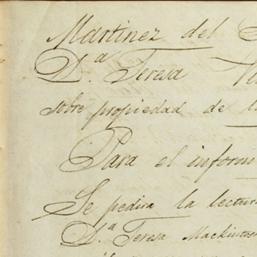 Martinez del
D.ª Teresa
sobre propiedad de
Para el inform
Se pedira la lectur
D.ª Teresa Mackintos